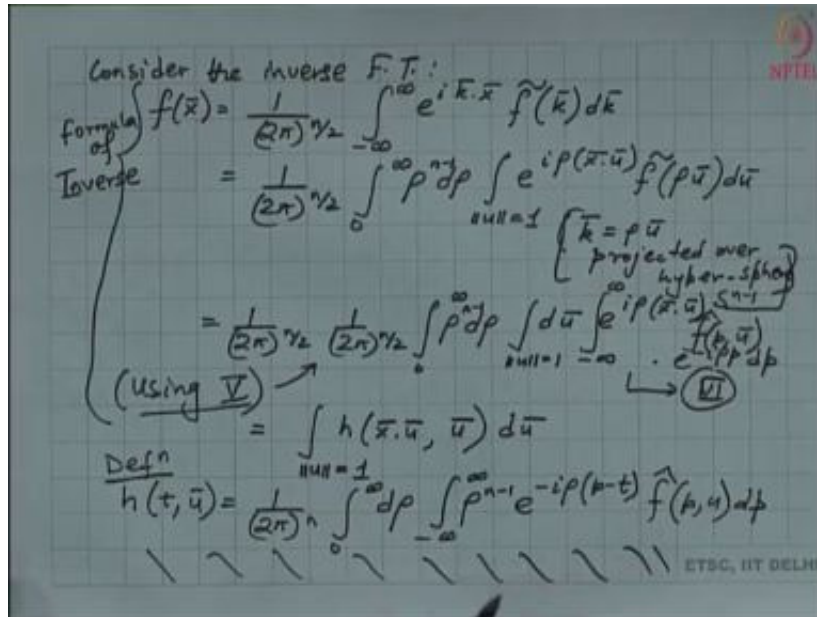 NPTEL
Consider the inverse F.T.:
formula of Inverse
f(x̄) = 1/(2π)^{n/2} ∫_{-∞}^{∞} e^{i k̄.x̄} f̃(k̄) dk̄
= 1/(2π)^{n/2} ∫_0^∞ ρ^{n-1} dρ ∫_{||u||=1} e^{iρ(x̄.ū)} f̃(ρū) dū
{k̄ = ρū
projected over
hyper-sphere
S^{n-1}}
= 1/(2π)^{n/2} 1/(2π)^{n/2} ∫_0^∞ ρ^{n-1} dρ ∫_{||u||=1} dū ∫_{-∞}^{∞} e^{iρ(x̄.ū)} f̂(p, ū)
. e^{-iρp} dp
(Using V) → ↳ VI
= ∫_{||u||=1} h(x̄.ū, ū) dū
Defn
h(t, ū) = 1/(2π)^n ∫_0^∞ dρ ∫_{-∞}^{∞} ρ^{n-1} e^{-iρ(p-t)} f̂(p, u) dp
ETSC, IIT DELHI